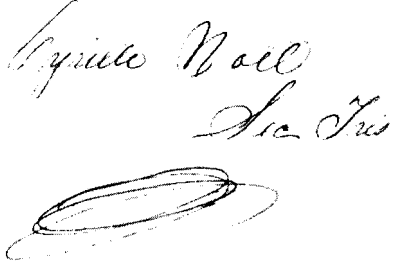 Cyrille Noel
Sec Trés